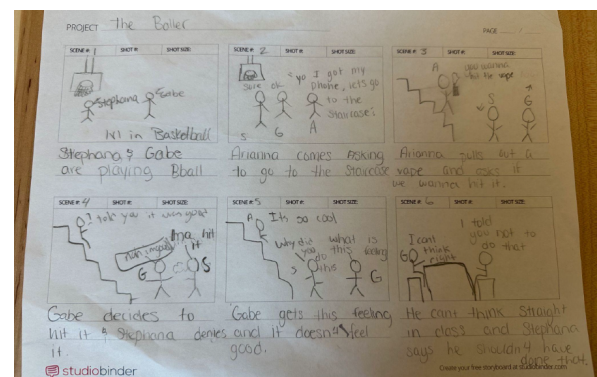 PROJECT The Baller
PAGE
SCENE #: 1 SHOT #: SHOT SIZE:
Stephana Gabe
1v1 in Basketball
Stephana & Gabe
are playing Bball
SCENE #: 2 SHOT #: SHOT SIZE:
sure ok "yo I got my
phone, lets go
to the
Staircase"
S G A
Arianna comes Asking
to go to the Staircase
SCENE #: 3 SHOT #: SHOT SIZE:
A you wanna
hit the vape
S G
Arianna pulls out a
vape and asks if
we wanna hit it.
SCENE #: 4 SHOT #: SHOT SIZE:
I told you it was good
Ima hit
it
G S
Gabe decides to
hit it & Stephana denies
it.
SCENE #: 5 SHOT #: SHOT SIZE:
A Its so cool
Why did you do this
what is this feeling
S G
Gabe gets this feeling
and it doesn't feel
good.
SCENE #: 6 SHOT #: SHOT SIZE:
I cant
think
right
I told
you not to
do that
G S
He cant think straight
in class and Stephana
says he shouldn't have
done that.
studiobinder
Create your free storyboard at studiobinder.com